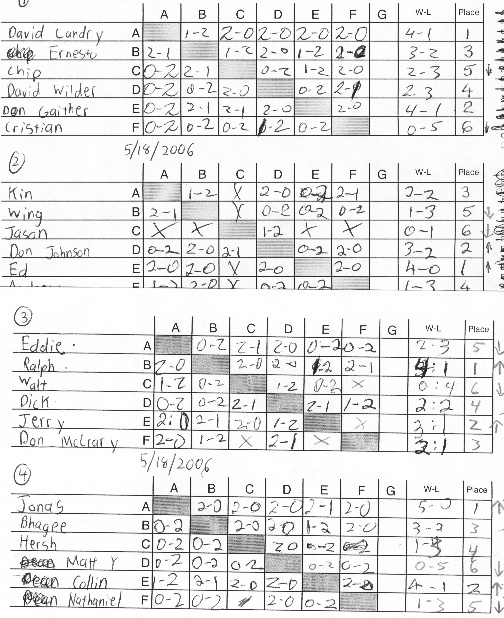 ①
A B C D E F G W-L Place
David Landry A 1-2 2-0 2-0 2-0 2-0 4-1 1
Ernesto B 2-1 1-2 2-0 1-2 2-0 3-2 3
Chip C 0-2 2-1 0-2 1-2 2-0 2-3 5 ↓
David Wilder D 0-2 0-2 2-0 0-2 2-1 2-3 4
Don Gaither E 0-2 2-1 2-1 2-0 2-0 4-1 2
Cristian F 0-2 0-2 0-2 1-2 0-2 0-5 6 ↓
5/18/2006
②
A B C D E F G W-L Place
Kin A 1-2 X 2-0 0-2 2-1 2-2 3
Wing B 2-1 X 0-2 0-2 0-2 1-3 5 ↓
Jason C X X 1-2 X X 0-1 6 ↓
Don Johnson D 0-2 2-0 2-1 0-2 2-0 3-2 2 ↑
Ed E 2-0 2-0 X 2-0 2-0 4-0 1 ↑
F 1-2 2-0 X 0-2 0-2 1-3 4
③
A B C D E F G W-L Place
Eddie A 0-2 2-1 2-0 0-2 0-2 2-3 5 ↓
Ralph B 2-0 2-0 2-0 1-2 2-1 4:1 1 ↑
Walt C 1-2 0-2 1-2 0-2 X 0:4 6 ↓
Dick D 0-2 0-2 2-1 2-1 1-2 2:2 4
Jerry E 2:0 2-1 2:0 1-2 X 3:1 2 ↑
Don McCrary F 2-0 1-2 X 2-1 X 2:1 3
5/18/2006
④
A B C D E F G W-L Place
Jonas A 2-0 2-0 2-0 2-1 2-0 5-0 1 ↑
Bhagee B 0-2 2-0 2-0 1-2 2-0 3-2 3
Hersh C 0-2 0-2 2-0 0-2 1-3 4
Matt Y D 0-2 0-2 0-2 0-2 0-2 0-5 6 ↓
Collin E 1-2 2-1 2-0 2-0 2-0 4-1 2 ↑
Nathaniel F 0-2 0-2 2-0 0-2 1-3 5 ↓